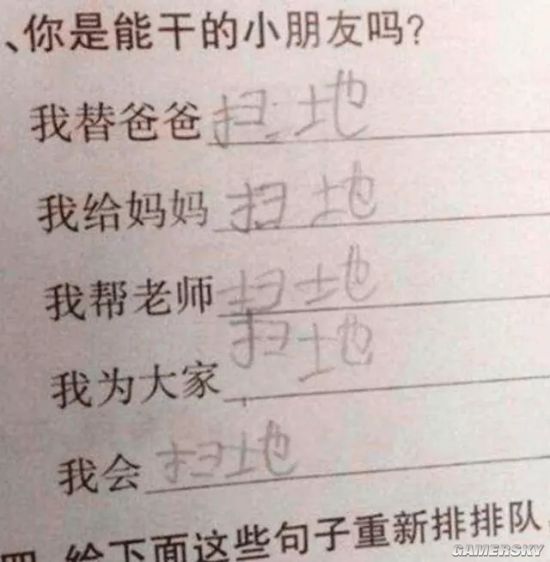 、你是能干的小朋友吗?
我替爸爸扫地
我给妈妈扫地
我帮老师扫地
我为大家扫地
我会扫地
四、给下面这些句子重新排排队
GAMERSKY